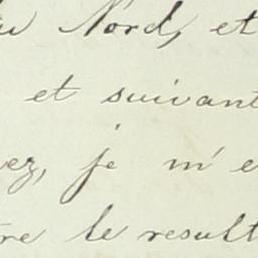 du Nord, et
et suivant
vez, je m'e
re le result